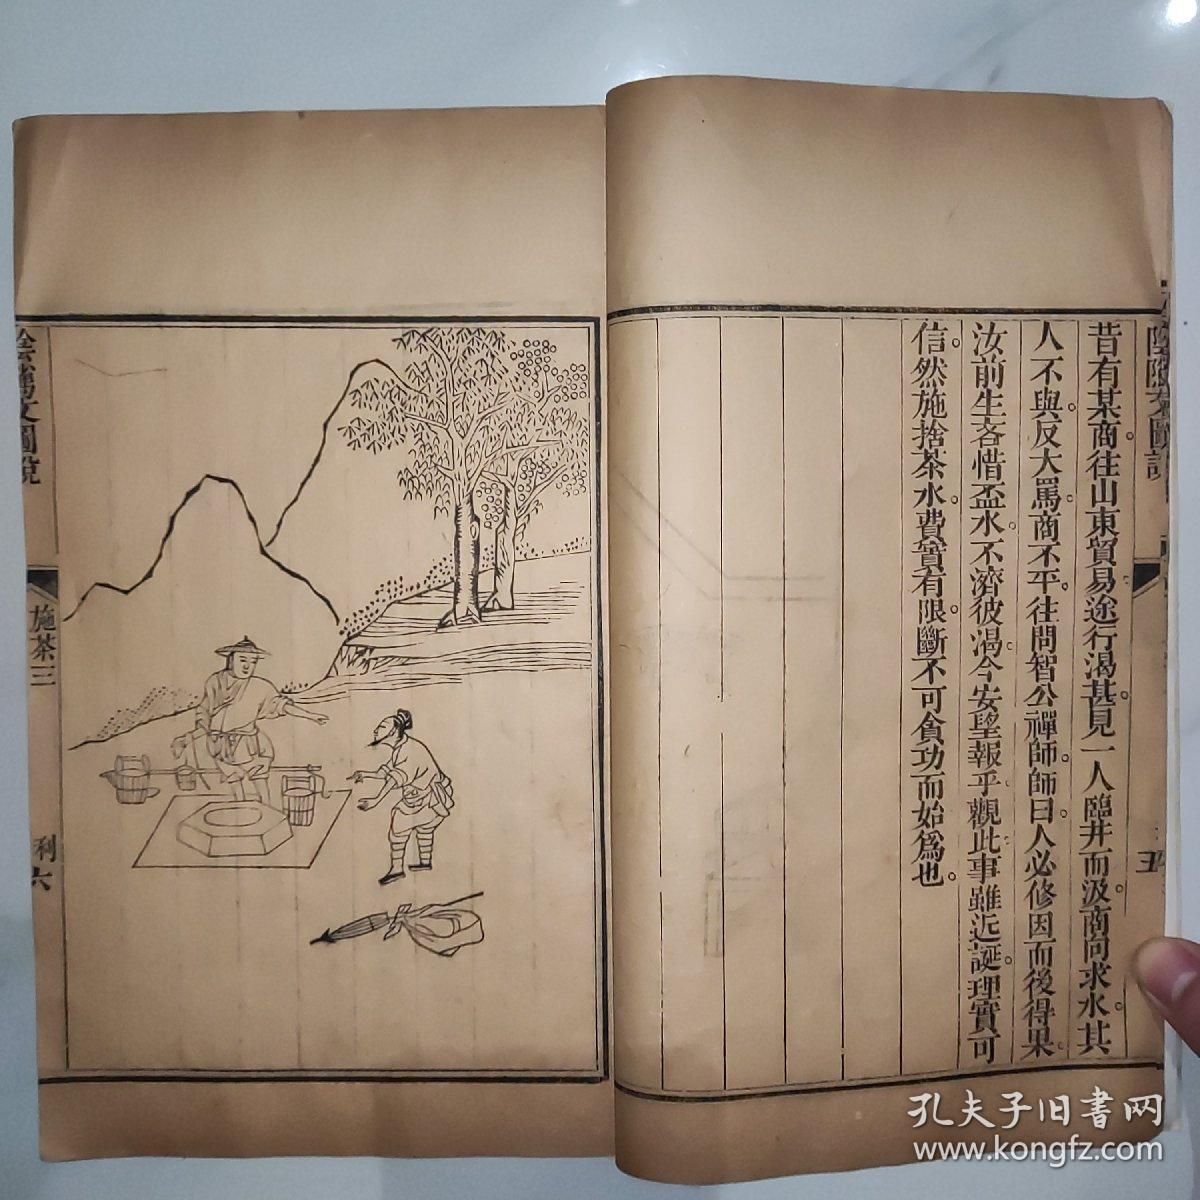 昔有某商往山東貿易途行渴甚見一人臨井而汲商向求水其
人不與反大罵商不平往問智公禪師師曰人必修因而後得果
汝前生吝惜盃水不濟彼渴今安望報乎觀此事雖近誕理實可
信然施捨茶水費實有限斷不可貪功而始爲也
陰騭文圖說
五
陰騭文圖說
施茶三
利六
孔夫子旧书网
www.kongfz.com